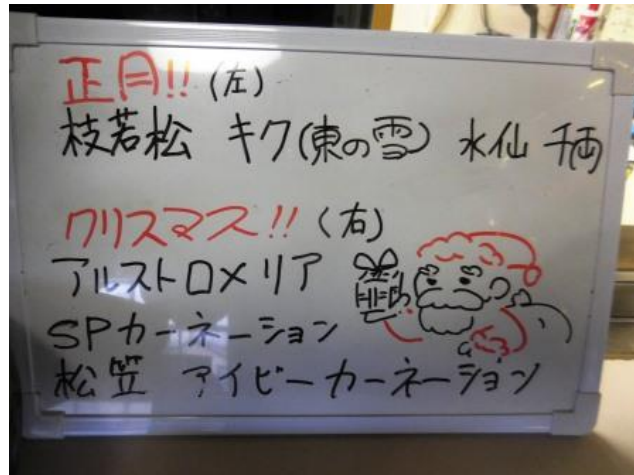 正月!! (左)
枝若松 キク(東の雪) 水仙 千両
クリスマス!! (右)
アルストロメリア
SPカーネーション
松笠 アイビーカーネーション